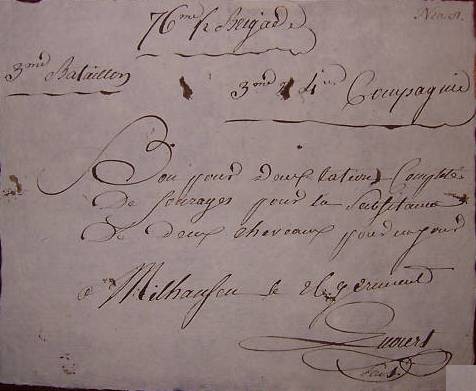 76me ½ Brigade
3me Bataillon
3me & 4me Compagnie
Bon pour deux rations Complètes
De fourages pour la subsistance
De deux chevaux pour un jour
a Milhausen le 26 germinal